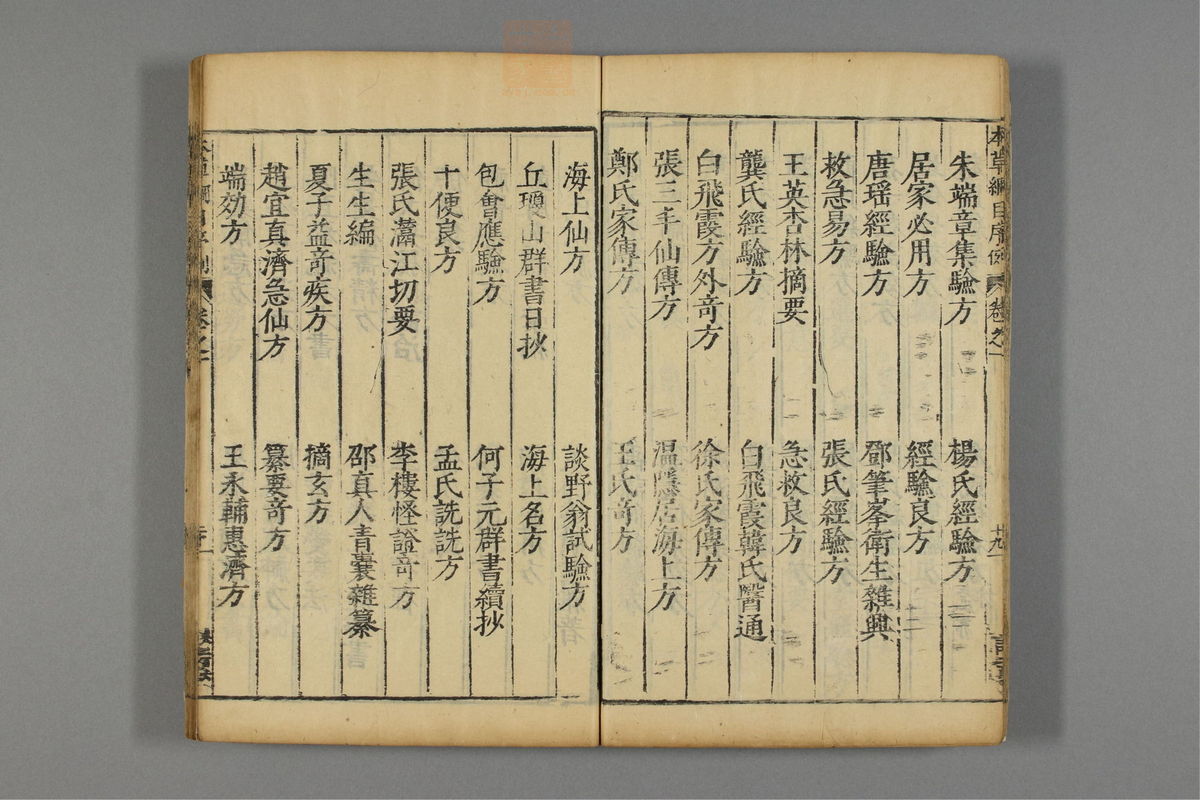 本草綱目序例 卷之一 十九
朱端章集驗方 楊氏經驗方
居家必用方 經驗良方
唐瑶經驗方 鄧筆峯衛生雜興
救急易方 張氏經驗方
王英杏林摘要 急救良方
龔氏經驗方 白飛霞韓氏醫通
白飛霞方外奇方 徐氏家傳方
張三丰仙傳方 温隱居海上方
鄭氏家傳方 王氏奇方
海上仙方 談野翁試驗方
丘瓊山群書日抄 海上名方
包會應驗方 何子元群書續抄
十便良方 孟氏詵詵方
張氏灊江切要 李樓怪證奇方
生生編 邵真人青囊雜纂
夏子益奇疾方 摘玄方
趙宜真濟急仙方 纂要奇方
端効方 王永輔惠濟方